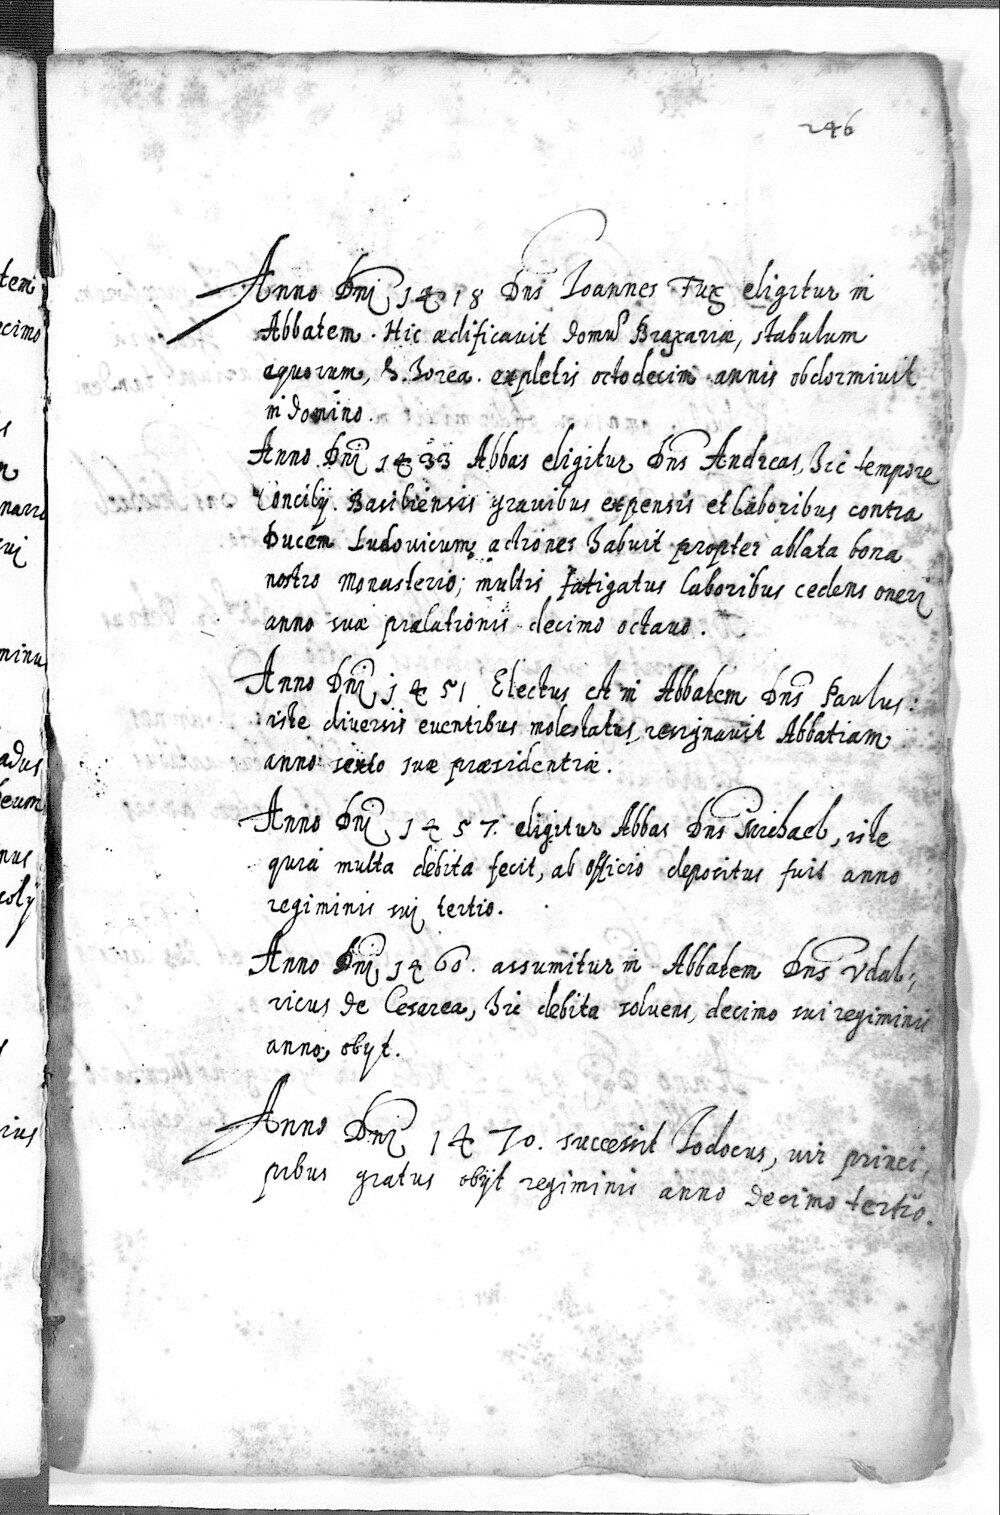 246
Anno Dni 1418 Dns Ioannes Fux eligitur in
Abbatem. Hic ædificauit domu Braxariæ, stabulum
equorum, & horea. expletis octodecim annis obdormiuit
in domino.
Anno Dni 1433 Abbas eligitur Dns Andreas, hic tempore
Concilij Basiliensis grauibus expensis et laboribus contra
Ducem Ludouicum, actiones habuit propter ablata bona
nostro Monasterio; multis fatigatus laboribus cedens oneri
anno suæ prælationis decimo octauo.
Anno Dni 1451 Electus est in Abbatem Dns Paulus:
iste diversis euentibus molestatus, resignauit Abbatiam
anno sexto suæ præsidentiæ.
Anno Dni 1457. eligitur Abbas Dns Michael, iste
quia multa debita fecit, ab officio depositus fuit anno
regiminis sui tertio.
Anno Dni 1460. assumitur in Abbatem Dns Vdal-
ricus de Cesarea, hic debita soluens, decimo sui regiminis
anno, obijt.
Anno Dni 1470. successit Iodocus, uir princi-
pibus gratus obijt regiminis anno decimo tertio.